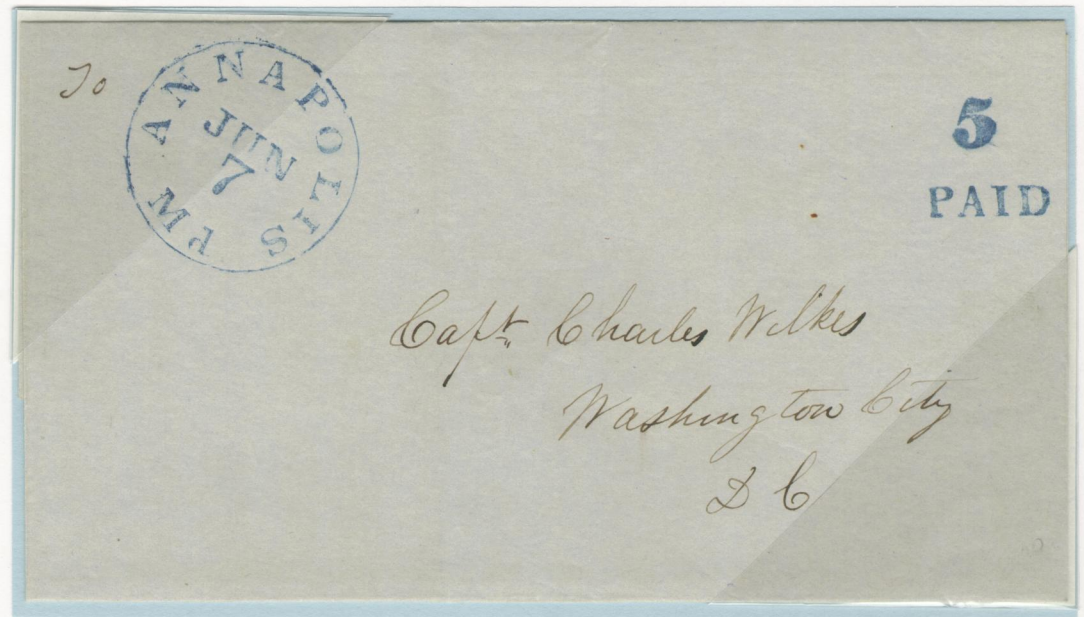 To
ANNAPOLIS Md
JUN
7
5
PAID
Capt. Charles Wilkes
Washington City
D C